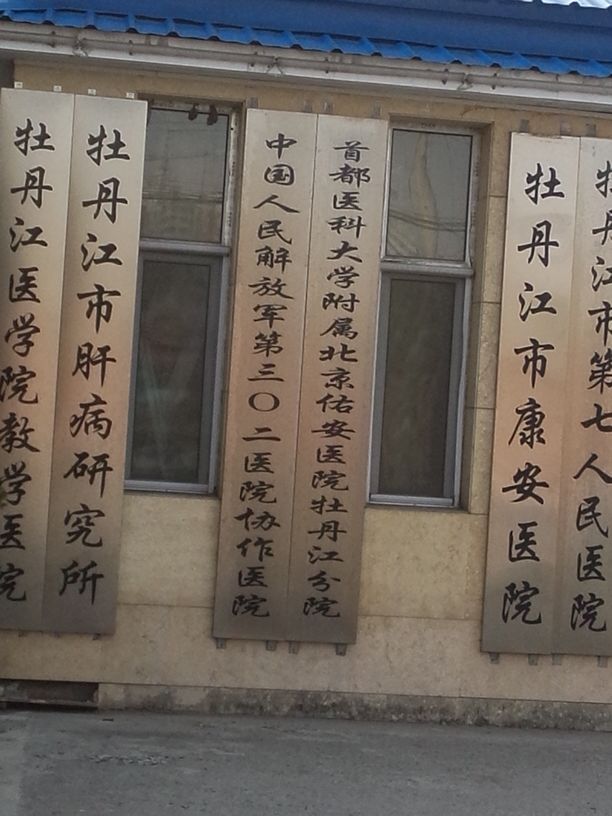 牡丹江医学院教学医院
牡丹江市肝病研究所
中国人民解放军第三〇二医院协作医院
首都医科大学附属北京佑安医院牡丹江分院
牡丹江市康安医院
牡丹江市第七人民医院